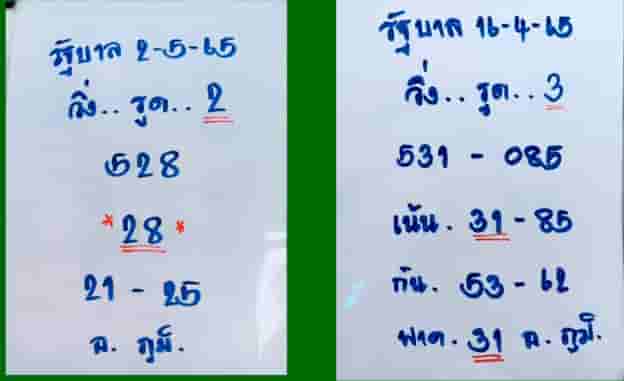 รัฐบาล 2-5-65
วิ่ง.. รูด.. 2
528
*28*
21 - 25
อ. ภูมิ.
รัฐบาล 16-4-65
วิ่ง.. รูด.. 3
531 - 085
เน้น. 31 - 85
กัน. 53 - 62
ฟาด. 31 อ. ภูมิ.